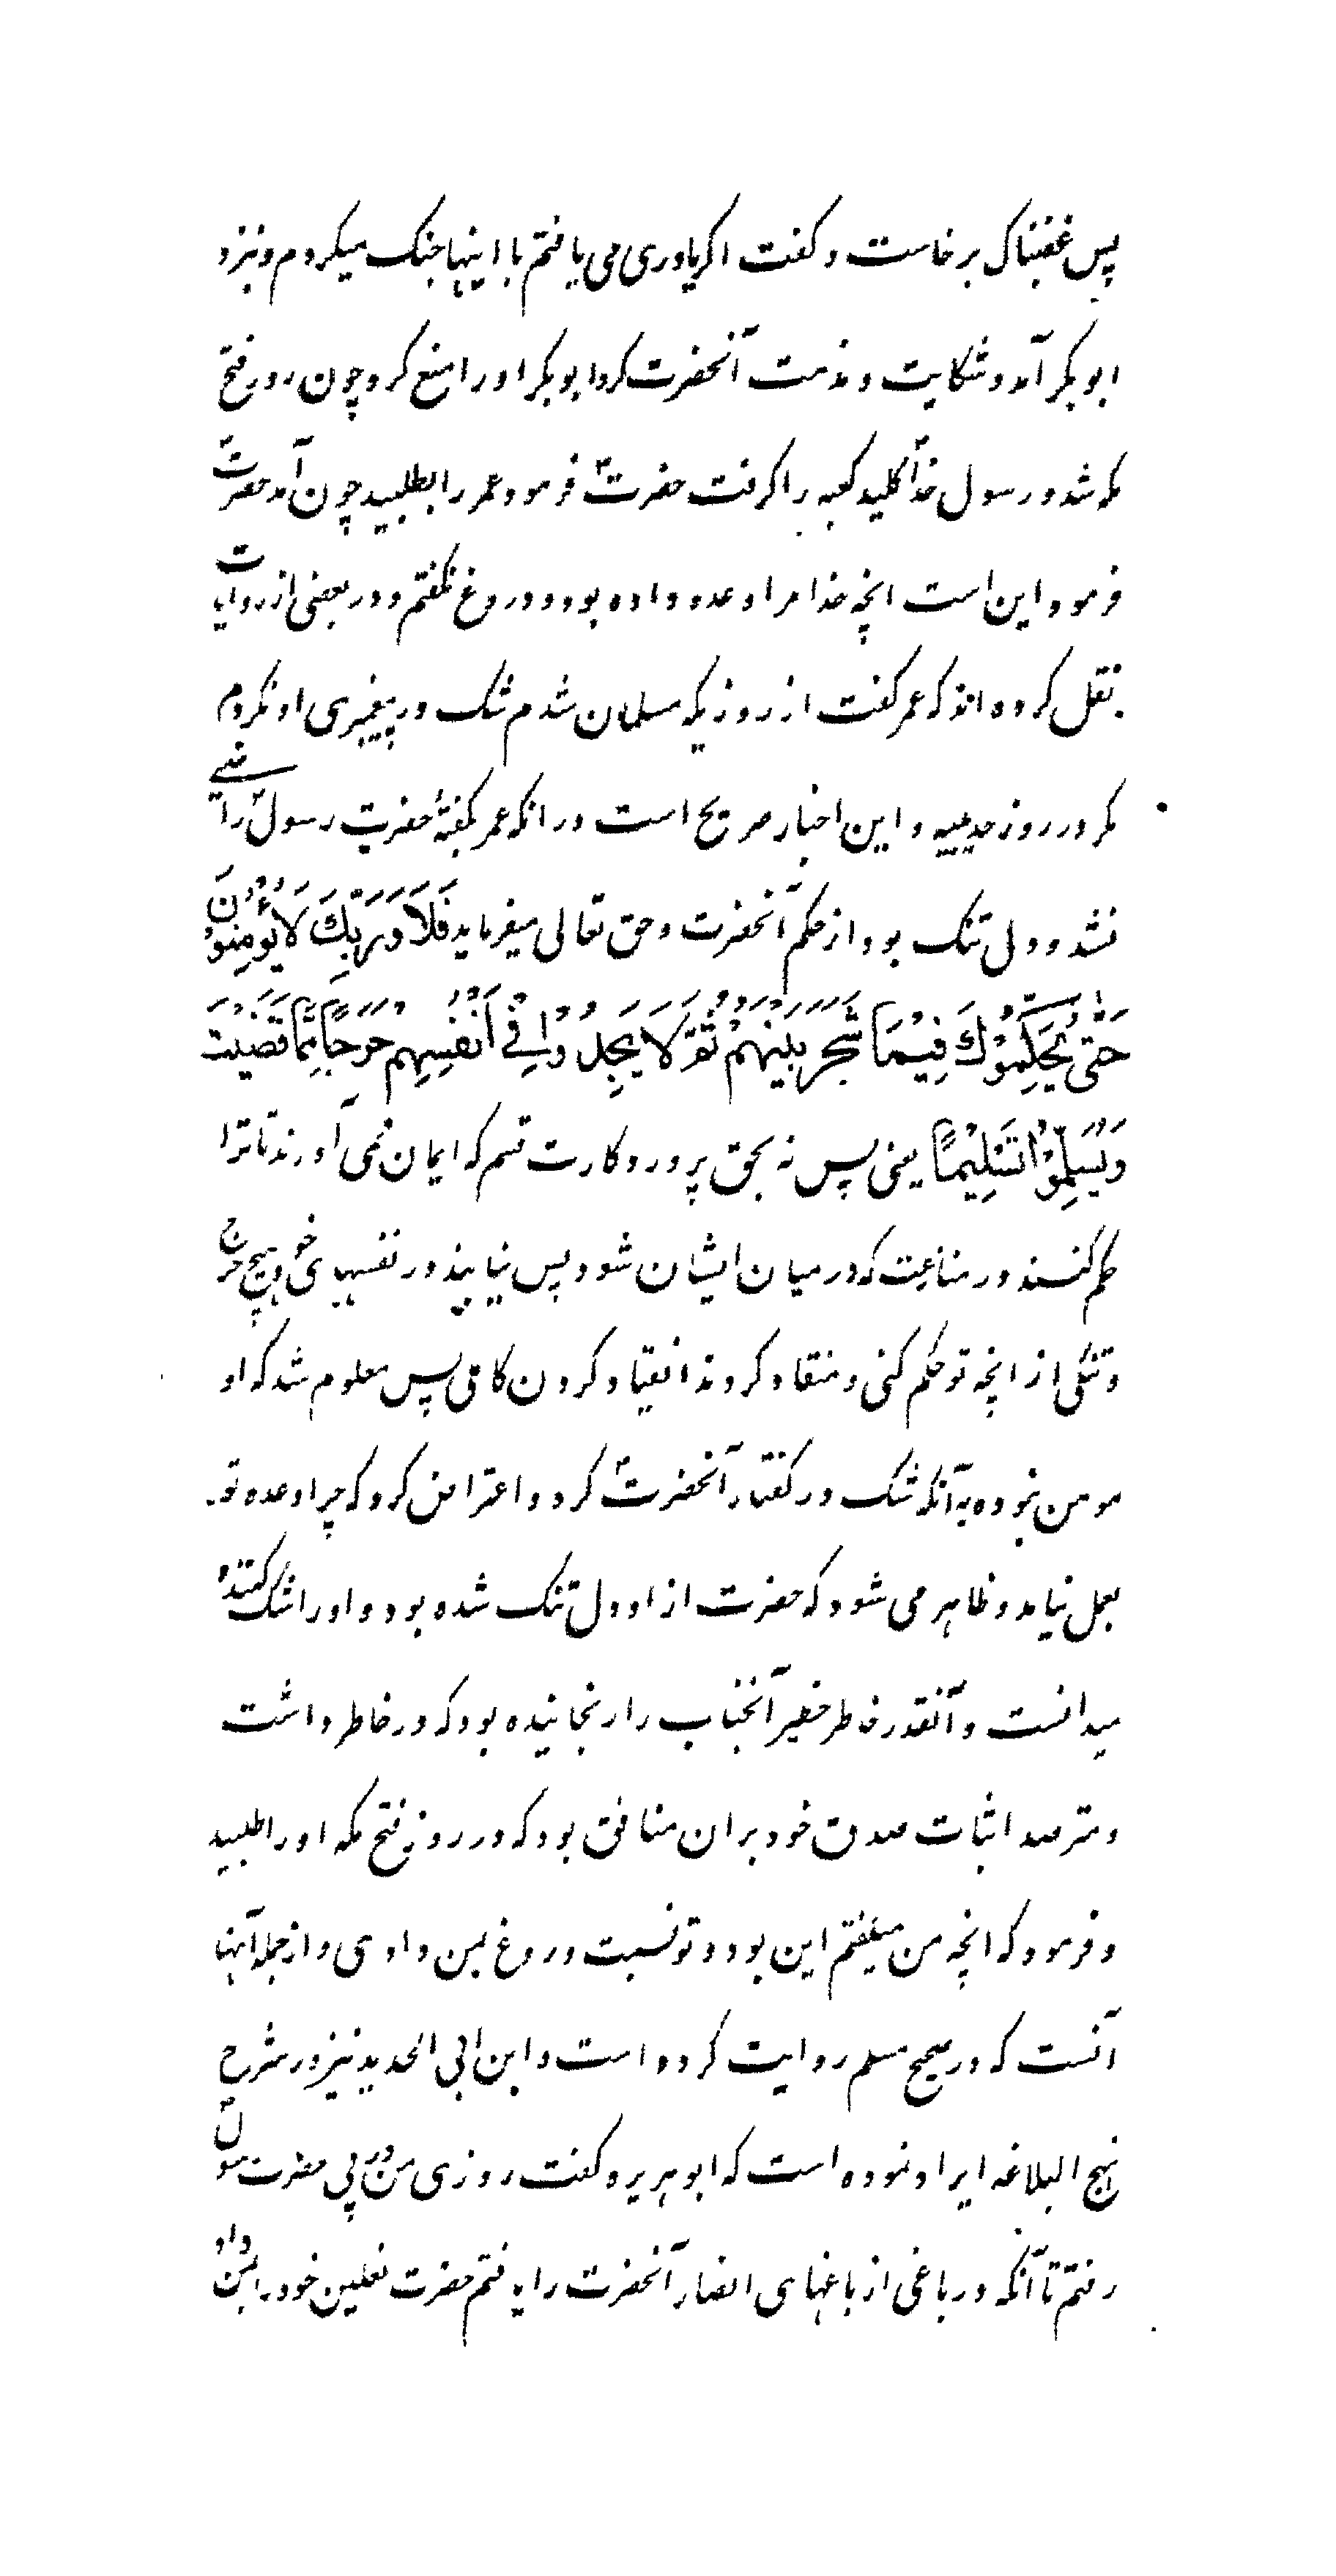 پس غضبناک برخاست و کفت اکر یاوری می یافتم با اینها جنک میکردم و نزد
ابوبکر آمد و شکایت و مذمت آنحضرت کرد ابوبکر اورا منع کرد چون روز فتح
مکه شد و رسول خدا کلید کعبه را کرفت حضرتؐ فرمود عمر را بطلبید چون آمد حضرتؐ
فرمود این است انچه خدا مرا وعده داده بود و دروغ نکفتم و در بعضی از روایات
نقل کرده اند که عمر کفت از روزیکه مسلمان شدم شک در پیغمبری او نکردم
مکر در روز حدیبیه و این اخبار صریح است در انکه عمر بکفتهٔ حضرت رسولؐ راضی
نشد و دل تنک بود از حکم آنحضرت و حق تعالی میفرماید فَلَا وَرَبِّكَ لَا يُؤْمِنُوْنَ
حَتّٰى يُحَكِّمُوْكَ فِيْمَا شَجَرَ بَيْنَهُمْ ثُمَّ لَا يَجِدُوْا فِيْ اَنْفُسِهِمْ حَرَجًا مِّمَّا قَضَيْتَ
وَيُسَلِّمُوْا تَسْلِيْمًا یعنی پس نه بحق پروردکارت قسم که ایمان نمی آورند تا ترا
حکم کنند در منازعت که در میان ایشان شود پس نیابند در نفسهای خود هیچ حرج
و تنکی از انچه تو حکم کنی و منقاد کردند انقیاد کردن کامل پس معلوم شد که او
مومن نبوده به آنکه شک در کفتار آنحضرتؐ کرد و اعتراض کرد که چرا وعده تو
بعمل نیامد و ظاهر می شود که حضرت از او دل تنک شده بود و اورا شک کننده
میدانست و آنقدر خاطر خطیر آنجناب را رنجانیده بود که در خاطر داشت
و مترصد اثبات صدق خود بران منافق بود که در روز فتح مکه اورا طلبید
و فرمود که انچه من میکفتم این بود و تو نسبت دروغ بمن دادی و از جمله آنها
آنست که در صحیح مسلم روایت کرده است و ابن ابی الحدید نیز در شرح
نهج البلاغه ایراد نموده است که ابوهریره کفت روزی من در پی حضرت رسولؐ
رفتم تا آنکه در باغی از باغهای انصار آنحضرت را یافتم حضرت نعلین خود را بمن داد